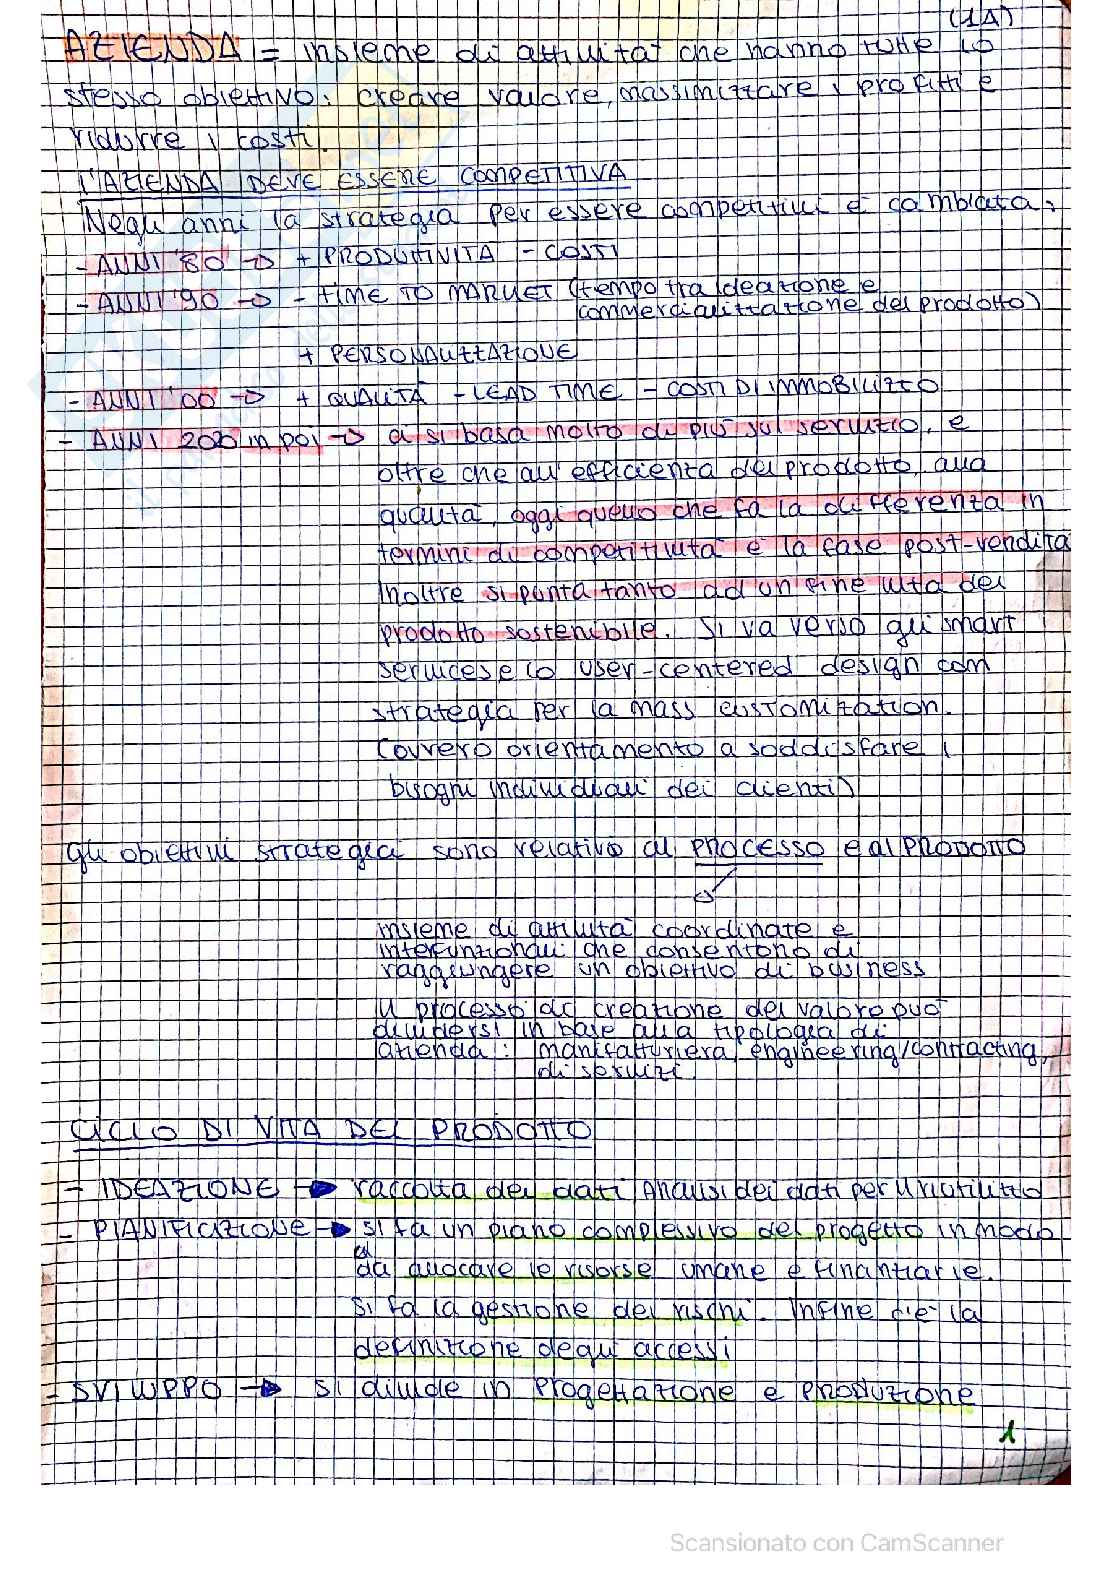 (1A)
AZIENDA = insieme di attività che hanno tutte lo
stesso obiettivo: creare valore, massimizzare i profitti e
ridurre i costi.
L'AZIENDA DEVE ESSERE COMPETITIVA
Negli anni la strategia per essere competitivi è cambiata:
- ANNI '80 → + PRODUTTIVITÀ - COSTI
- ANNI '90 → - TIME TO MARKET (tempo tra ideazione e
commercializzazione del prodotto)
+ PERSONALIZZAZIONE
- ANNI '00 → + QUALITÀ - LEAD TIME - COSTI DI IMMOBILIZZO
- ANNI 2020 in poi → ci si basa molto di più sul servizio, e
oltre che all'efficienza del prodotto, alla
qualità, oggi quello che fa la differenza in
termini di competitività è la fase post-vendita
Inoltre si punta tanto ad un fine vita del
prodotto sostenibile. Si va verso gli smart
services e lo user-centered design com
strategia per la mass customization.
(ovvero orientamento a soddisfare i
bisogni individuali dei clienti)
Gli obiettivi strategici sono relativo al PROCESSO e al PRODOTTO
insieme di attività coordinate e
interfunzionali che consentono di
raggiungere un obiettivo di business
Il processo di creazione del valore può
dividersi in base alla tipologia di
azienda: manifatturiera, engineering/contracting,
di servizi.
CICLO DI VITA DEL PRODOTTO
- IDEAZIONE → raccolta dei dati Analisi dei dati per il riutilizzo
- PIANIFICAZIONE → si fa un piano complessivo del progetto in modo
da allocare le risorse umane e finanziarie.
Si fa la gestione dei rischi. Infine c'è la
definizione degli accessi
- SVILUPPO → si divide in progettazione e produzione
1
Scansionato con CamScanner